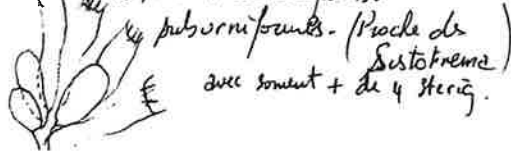 puburniformes. (Proche de
Sistotrema)
avec souvent + de 4 sterig.